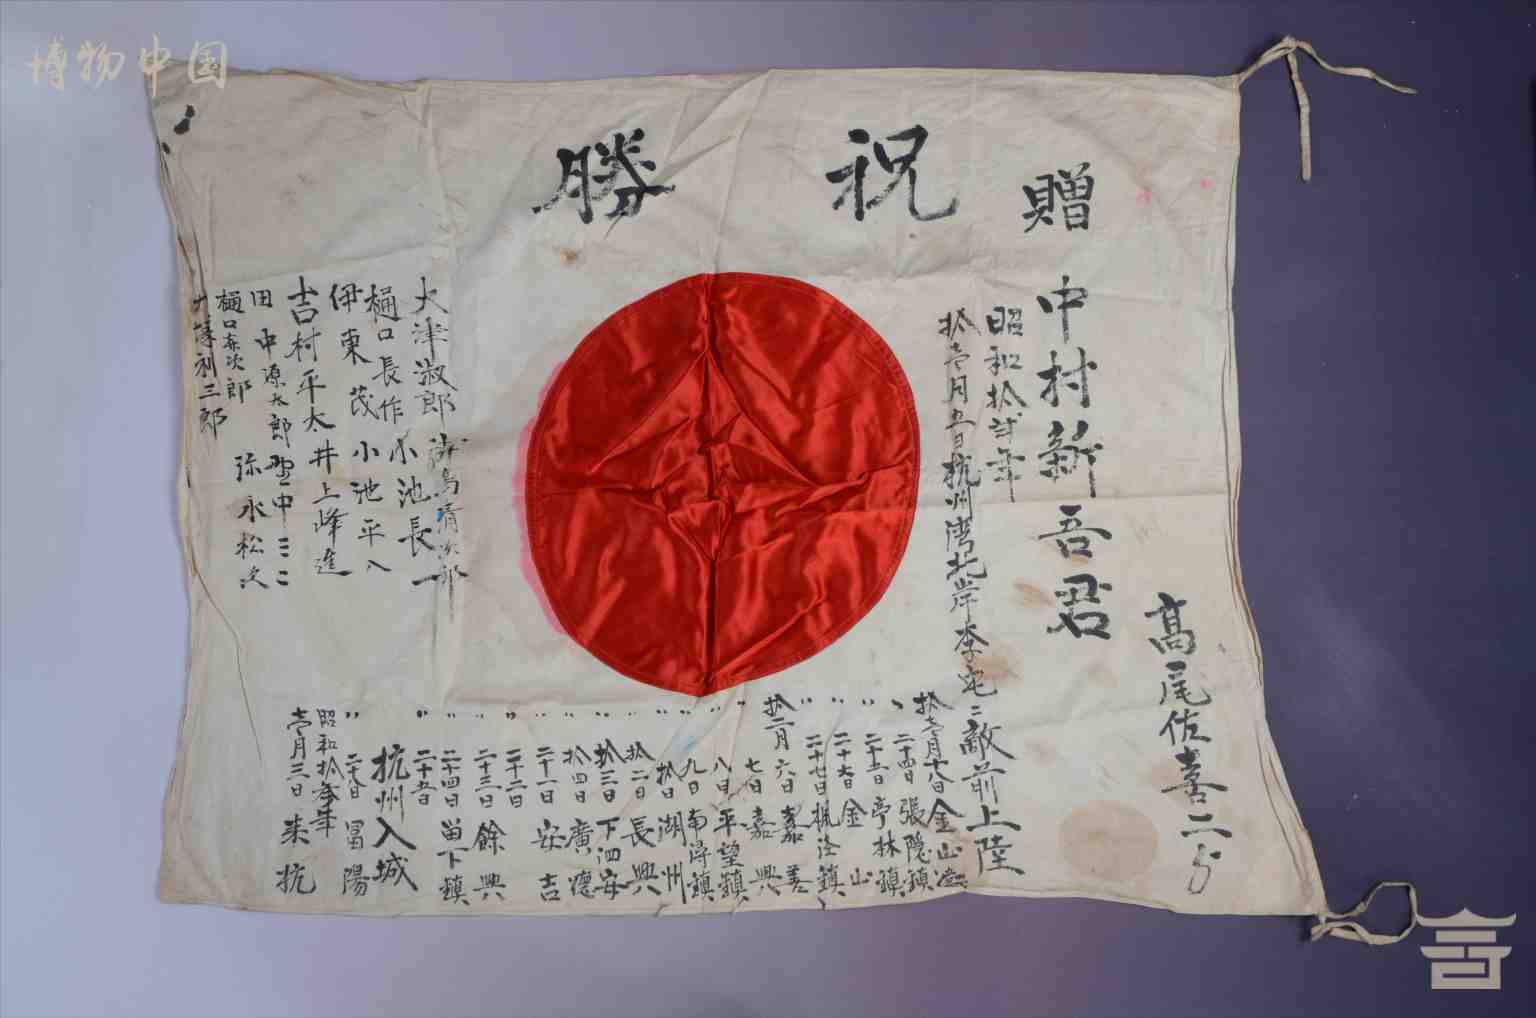 博物中国
祝勝
贈
中村新吾君
高尾佐喜二
昭和拾弐年
拾壱月五日杭州湾北岸李宅ニ敵前上陸
拾壱月十八日金山
〃二十四日張隠鎮
〃二十五日亭林鎮
〃二十六日金山
〃二十七日楓涇鎮
拾二月六日嘉善
〃七日嘉興
〃八日平望鎮
〃九日南潯鎮
〃拾日湖州
〃拾二日長興
〃拾三日下泗安
〃拾四日廣德
〃二十一日安吉
〃二十二日
〃二十三日餘興
〃二十四日苗下鎮
〃二十五日
杭州入城
〃二十八日冨陽
昭和拾参年
壱月三日来抗
大津淑郎
樋口長作 小池長一
伊東茂 小池平八
吉村平太 井上峰進
田中源太郎 野中三二
樋口次郎 弥永松次
利三郎